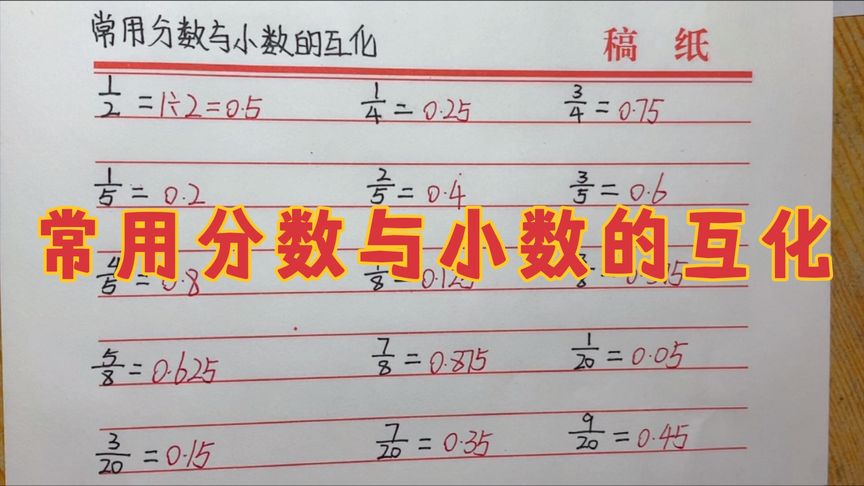 常用分数与小数的互化 稿 纸
1/2 = 1÷2 = 0.5 1/4 = 0.25 3/4 = 0.75
1/5 = 0.2 2/5 = 0.4 3/5 = 0.6
常用分数与小数的互化
4/5 = 0.8 1/8 = 0.125 3/8 = 0.375
5/8 = 0.625 7/8 = 0.875 1/20 = 0.05
3/20 = 0.15 7/20 = 0.35 9/20 = 0.45